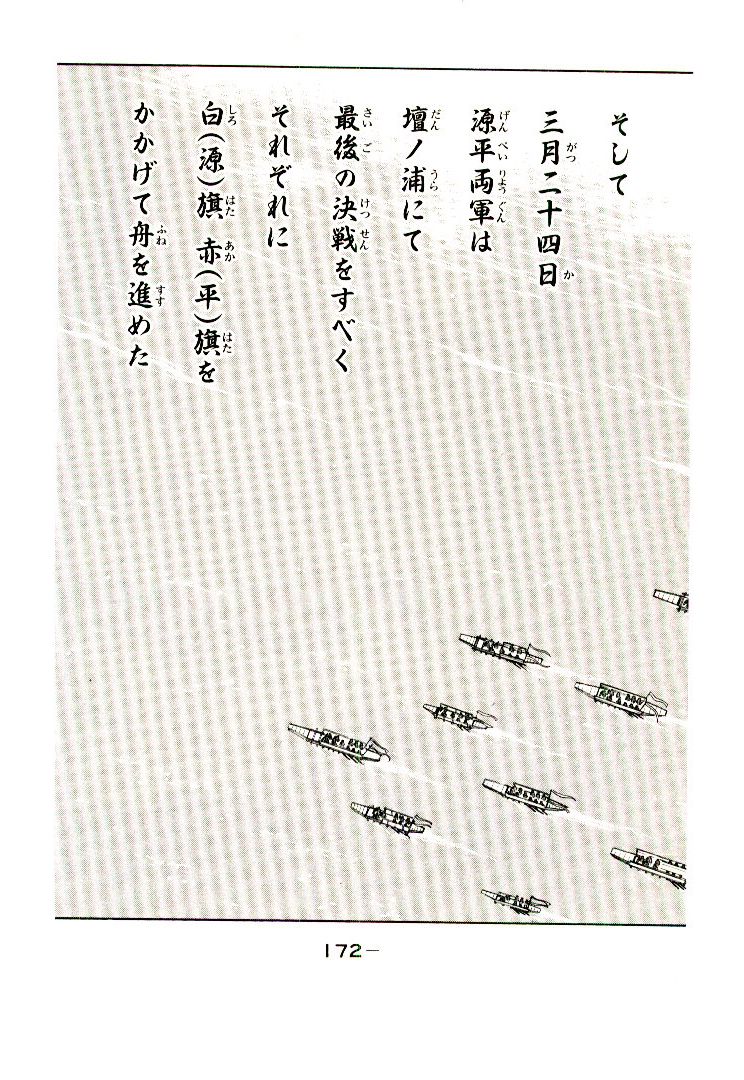 そして
三月二十四日
源平両軍は
壇ノ浦にて
最後の決戦をすべく
それぞれに
白(源)旗 赤(平)旗を
かかげて舟を進めた
172−